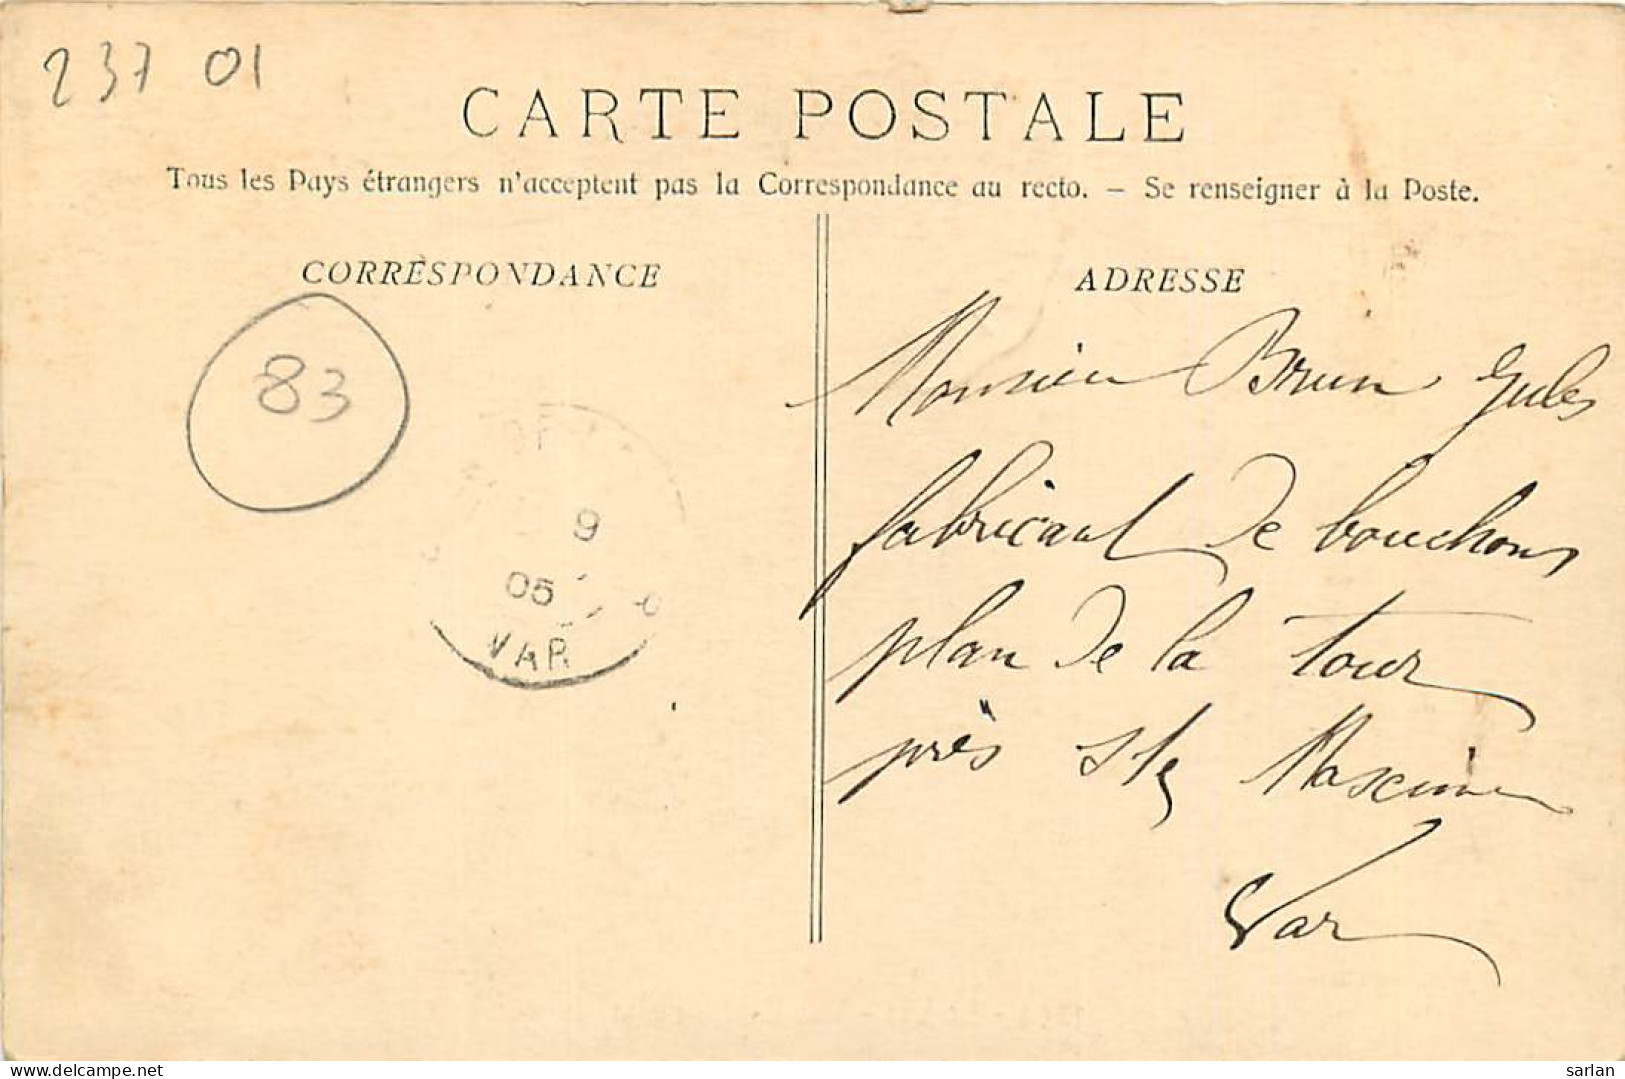 237 01
CARTE POSTALE
Tous les Pays étrangers n'acceptent pas la Correspondance au recto. — Se renseigner à la Poste.
CORRESPONDANCE
83
9
05
VAR
ADRESSE
Monsieur Brun Jules
fabricant de bouchons
plan de la tour
près Ste Maxime
Var
sarlan